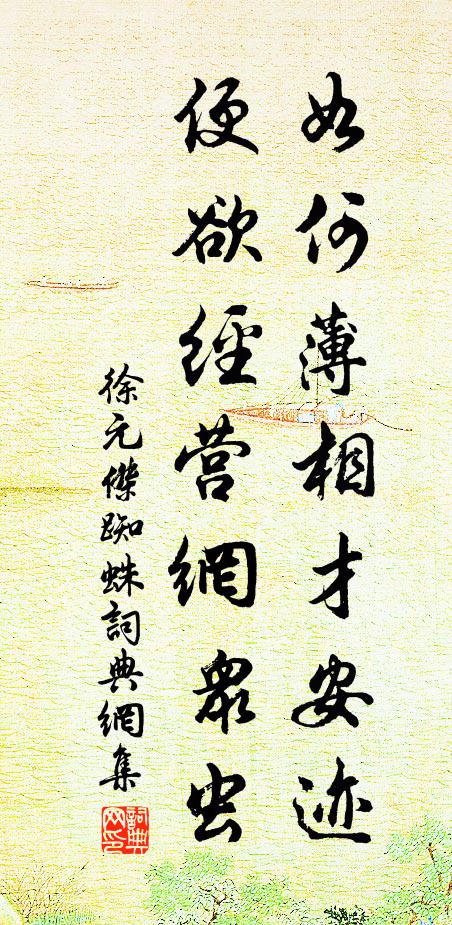 如何薄相才安迹
便欲經营網衆虫
徐元傑踟蛛詞典網集
詞典网印